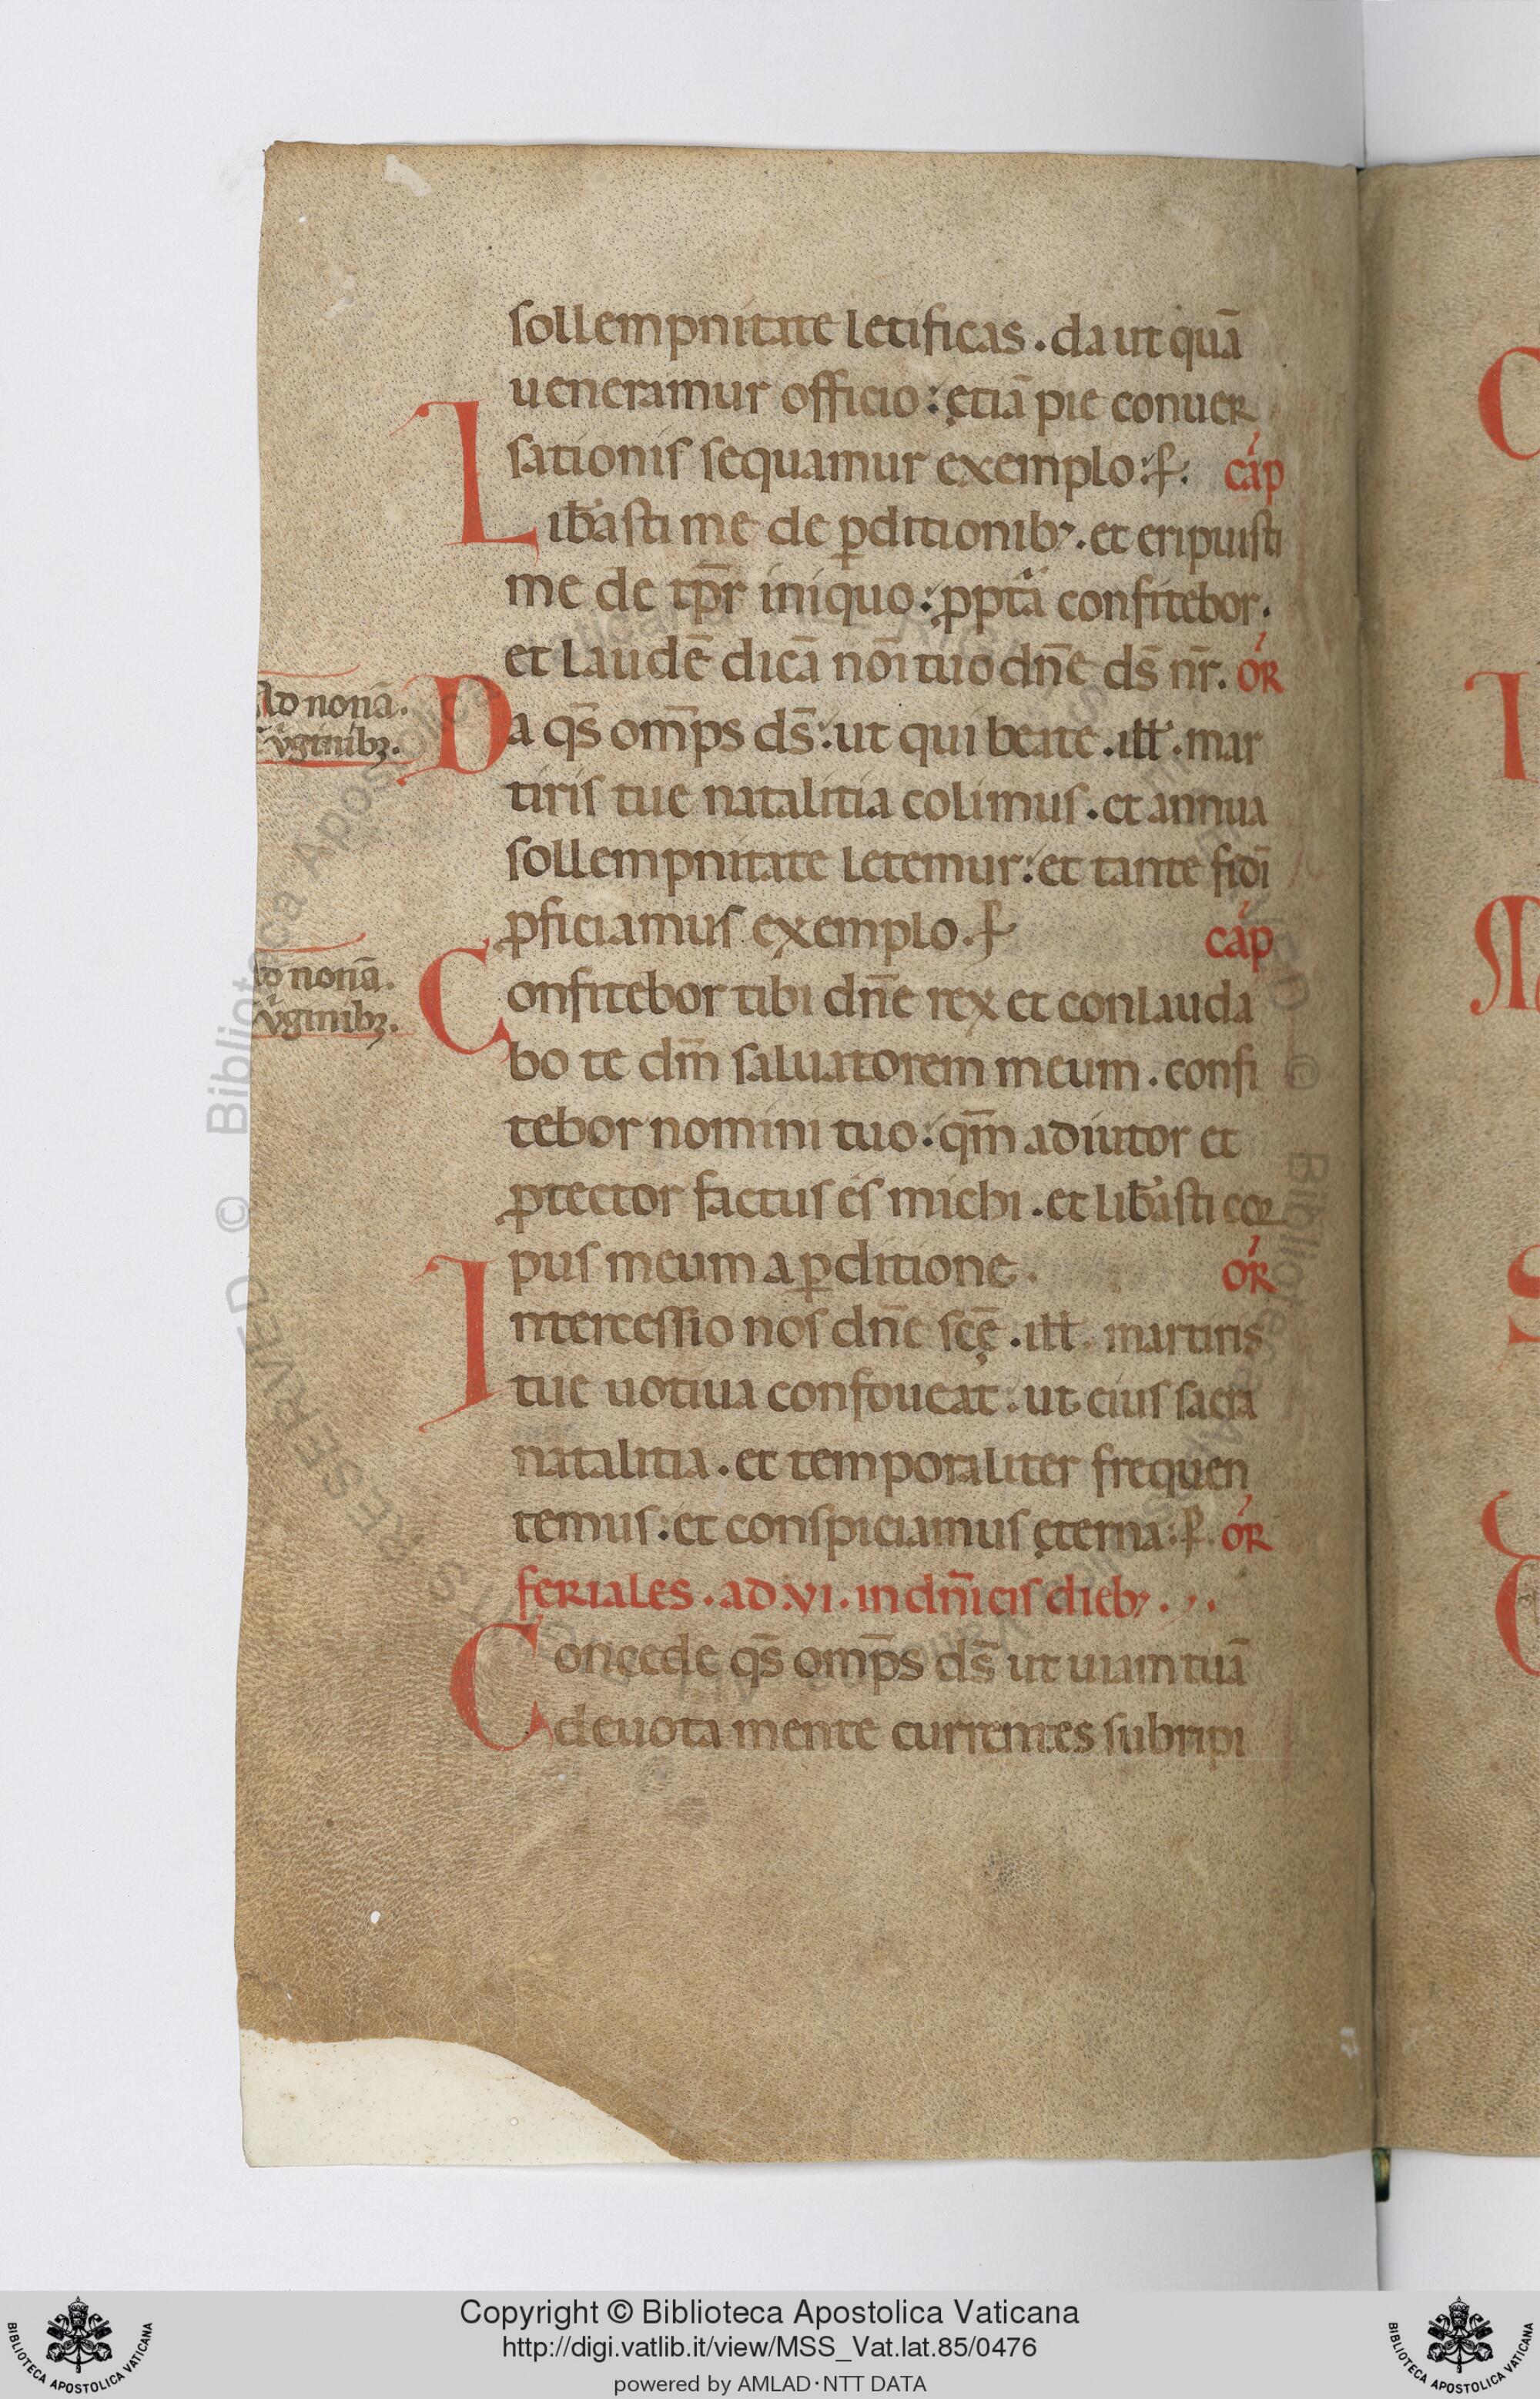 sollempnitate letificas. da ut quā
ueneramur officio: ętiā pie conuer
sationis sequamur exemplo: ꝑ. cap̄
Lib̄asti me de ꝑditionibꝫ. et eripuisti
me de tp̄r iniquo: ꝓpt̄a confitebor.
et laudē dicā nōi tuo dn̄e ds̄ nr̄. or̄
Ad nonā.
uginibꝫ.
Da qs̄ omp̄s ds̄: ut qui beate. ill̄. mar
tiris tue natalitia colimus. et annua
sollempnitate letemur: et tante fidī
ꝓficiamus exemplo. ꝑ cap̄
Ad nonā.
uginibꝫ.
Confitebor tibi dn̄e rex et conlauda
bo te dm̄ saluatorem meum. confi
tebor nomini tuo: qm̄ adiutor et
ꝓtector factus es michi. et lib̄asti cor
pus meum a ꝑditione. or̄
Intercessio nos dn̄e scę̄. ill̄. martiris
tue uotiua confoueat: ut eius sacra
natalitia. et temporaliter frequen
temus: et conspiciamus ęterna: ꝑ. or̄
feriales. ad. vi. in dn̄icis diebꝫ.
Concede qs̄ omp̄s ds̄ ut uiam tuā
deuota mente currentes subripi
Copyright © Biblioteca Apostolica Vaticana
http://digi.vatlib.it/view/MSS_Vat.lat.85/0476
powered by AMLAD·NTT DATA
BIBLIOTECA APOSTOLICA VATICANA
BIBLIOTECA APOSTOLICA VATICANA